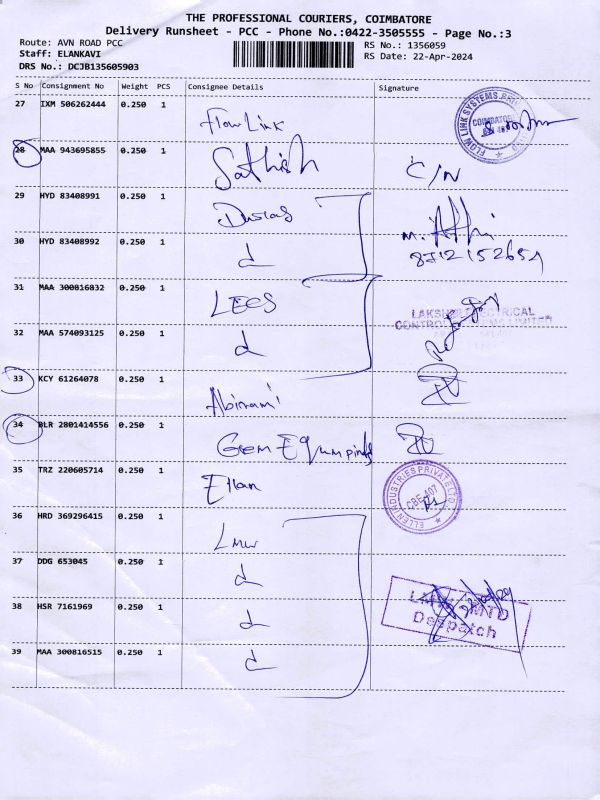 THE PROFESSIONAL COURIERS, COIMBATORE
Delivery Runsheet - PCC - Phone No.:0422-3505555 - Page No.:3
Route: AVN ROAD PCC
RS No.: 1356059
Staff: ELANKAVI
RS Date: 22-Apr-2024
DRS No.: DCJB135605903
S No Consignment No Weight PCS Consignee Details Signature
27 IXM 506262444 0.250 1 Flow Link
FLOW LINK SYSTEMS COIMBATORE
28 MAA 943695855 0.250 1 Sathish C/N
29 HYD 83408991 0.250 1
30 HYD 83408992 0.250 1 d
31 MAA 300816832 0.250 1 LECS
LAKSHMI ELECTRICAL
32 MAA 574093125 0.250 1 d
33 KCY 61264078 0.250 1 Abirami
34 BLR 2801414556 0.250 1 Gem
35 TRZ 220605714 0.250 1 Ellan
ELLEN INDUSTRIES PRIVATE LTD. CBE-407
36 HRD 369296415 0.250 1 LMW
37 DDG 653045 0.250 1 d
38 HSR 7161969 0.250 1 d
Despatch
39 MAA 300816515 0.250 1 d